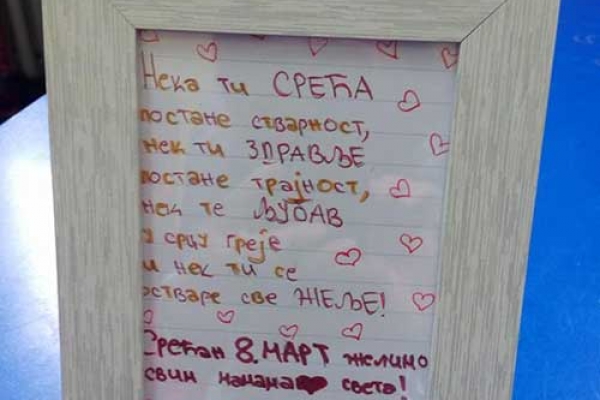 Нека ти СРЕЋА
постане стварност,
нек ти ЗДРАВЉЕ
постане трајност,
нек те ЉУБАВ
у срцу греје
и нек ти се
остваре све ЖЕЉЕ!
Срећан 8. МАРТ желимо
свим мамама света!